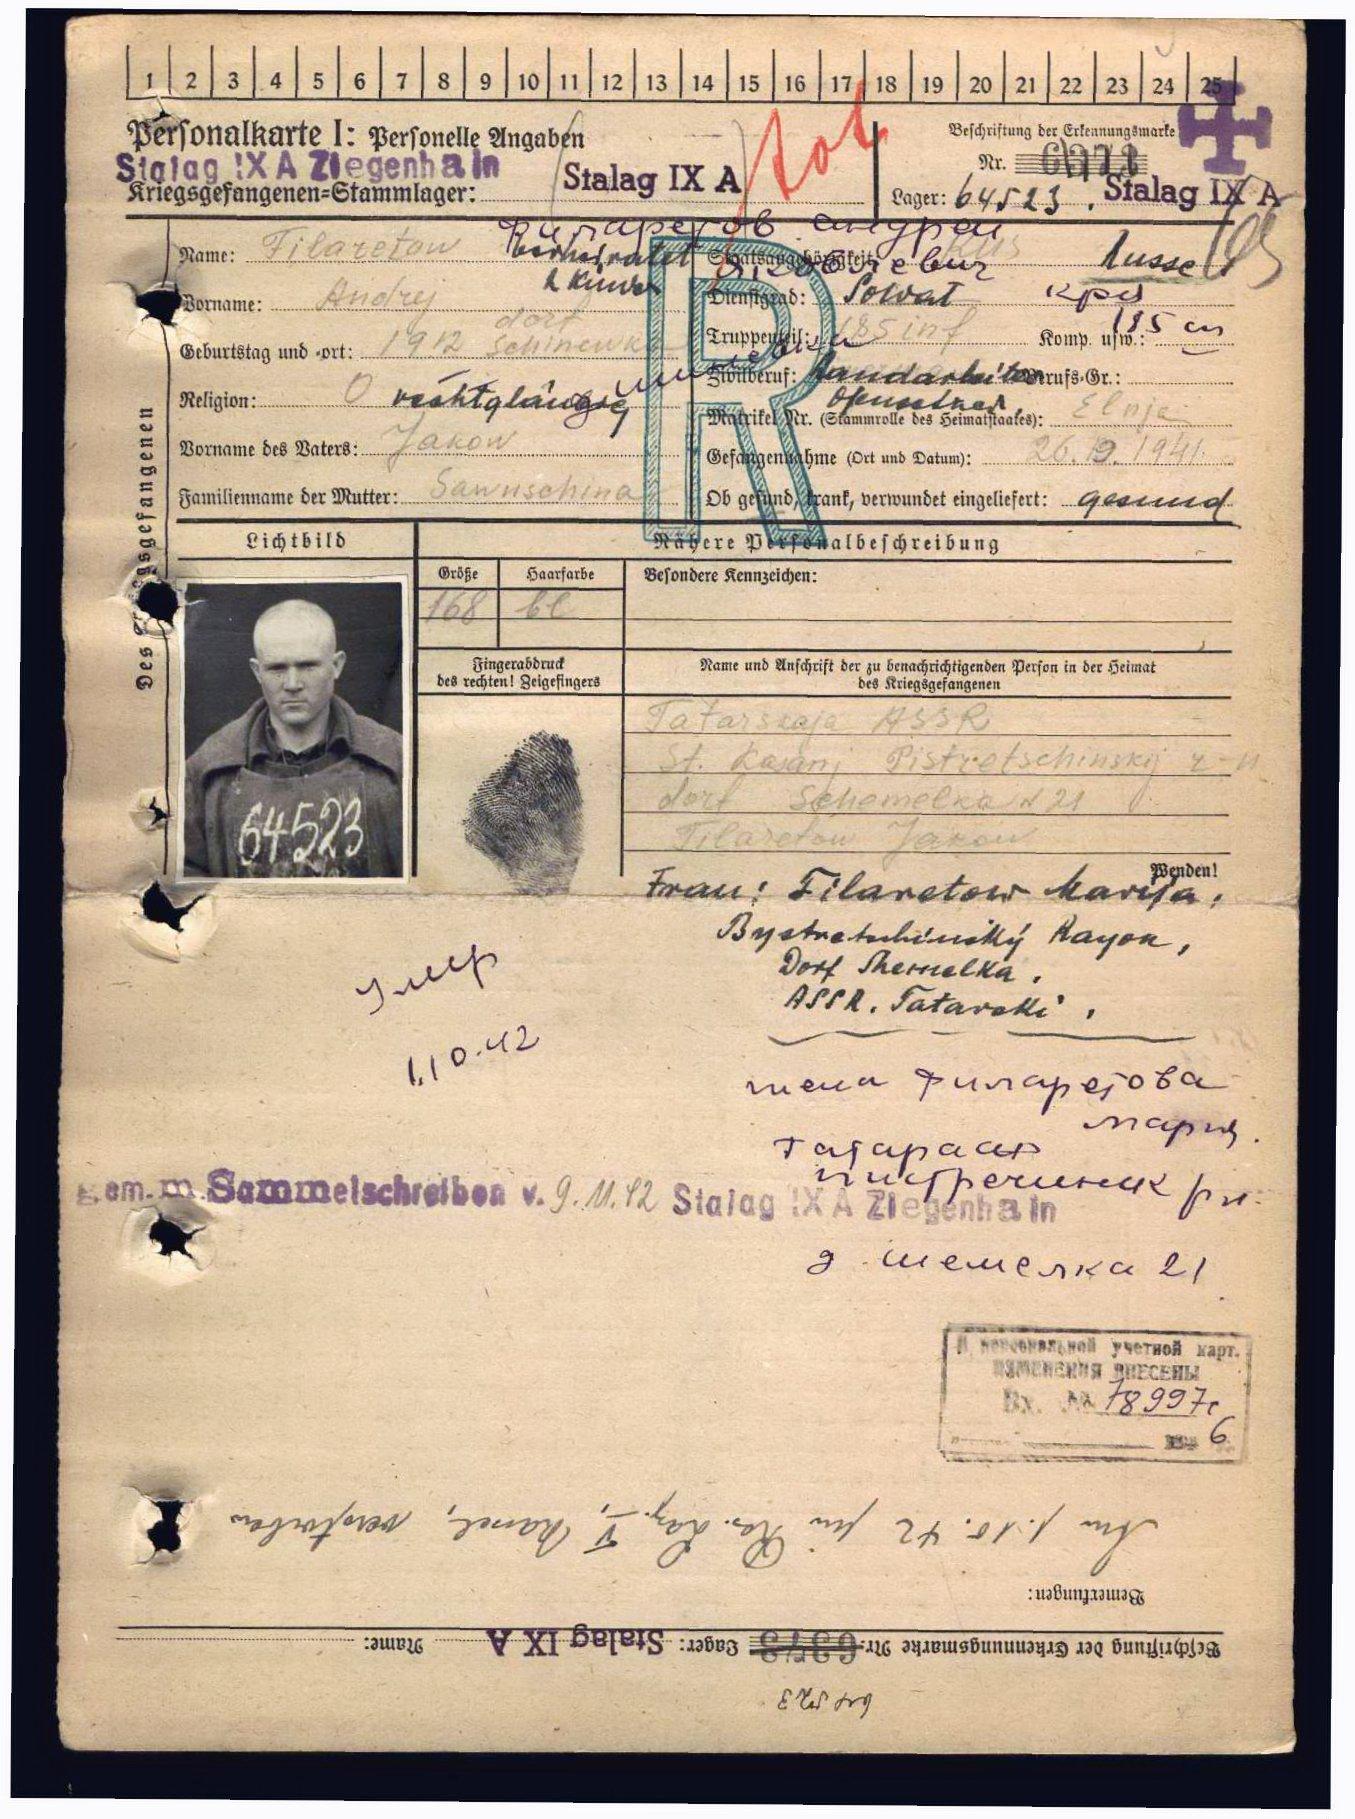 1 2 3 4 5 6 7 8 9 10 11 12 13 14 15 16 17 18 19 20 21 22 23 24 25
Personalkarte I: Personelle Angaben
Stalag IX A Ziegenhain
Kriegsgefangenen=Stammlager: Stalag IX A
tot
Beschriftung der Erkennungsmarke
Nr.
Lager: 64523. Stalag IX A
Des Kriegsgefangenen
Филаретов андрей
Name: Filaretow verheiratet
Staatsangehörigkeit: Rus Russe
Яковлевич
Vorname: Andrej
Dienstgrad: Soldat кра
dorf
Geburtstag und -ort: 1912 Schinewka
Truppenteil: 185 inf Komp. usw.: 185 сп
Religion: O rechtgläubig
Zivilberuf: Landarbeiter Berufs-Gr.:
Ofensetzer
Vorname des Vaters: Jakow
Matrikel Nr. (Stammrolle des Heimatstaates): Elnja
Gefangennahme (Ort und Datum): 26.9.1941
Familienname der Mutter: Sawnschina
Ob gesund, krank, verwundet eingeliefert: gesund
R
Lichtbild
Nähere Personalbeschreibung
Größe Haarfarbe Besondere Kennzeichen:
168 bl
Fingerabdruck
des rechten! Zeigefingers
Name und Anschrift der zu benachrichtigenden Person in der Heimat
des Kriegsgefangenen
64523
Tatarskaja ASSR
St. Kasanj Pistretschinskij r-n
dorf Schemelka N 21
Filaretow Jakow
Wenden!
Frau: Filaretow Marija,
Bystretschinskÿ Rayon,
Dorf Shemelka,
ASSR. Tatarski,
Умер
1.10.42
жена Филаретова
Мария.
Татарааср
пистречинск рн.
gem. m. Sammelschreiben v. 9.11.42 Stalag IX A Ziegenhain
д шемелка 21
В персональной учетной карт.
ИЗМЕНЕНИЯ ВНЕСЕНЫ
Вх. № 78997с
6
Am 1.10.42 im Res. Laz. V, Kassel, verstorben
Bemerkungen:
Beschriftung der Erkennungsmarke Nr. 6273 Lager: Stalag IX A Name:
64523